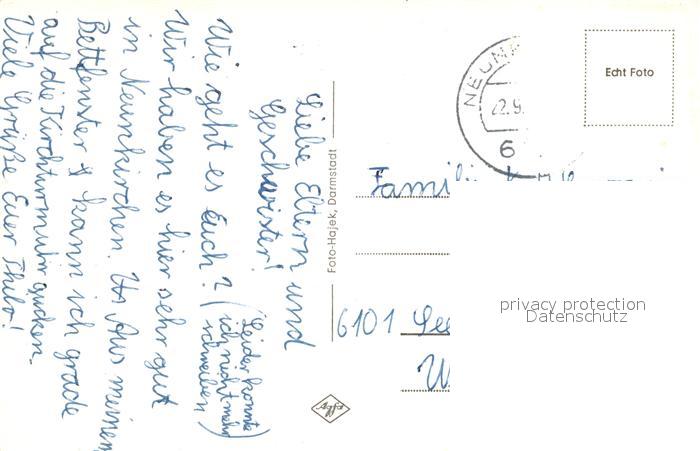 Liebe Eltern und
Geschwister!
Wie geht es Euch? (Leider konnte
ich nicht mehr
schreiben)
Wir haben es hier sehr gut
in Neunkirchen. Aus meinem
Bettfenster kann ich grade
auf die Kirchturmuhr gucken.
Viele Grüße Euer Thilo!
Foto-Hajek, Darmstadt
22.9.
6
Echt Foto
Famili
6101
privacy protection
Datenschutz